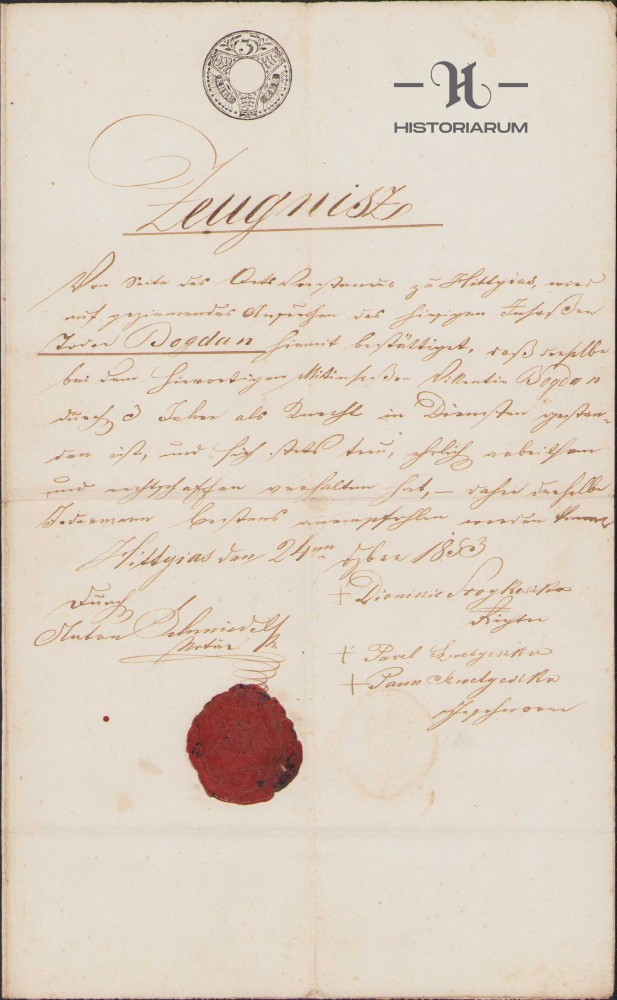 3
HISTORIARUM
Zeugnisz
Von Seite des Ortsvorstandes zu Hittyias, wird
auf geziemendes Ansuchen des hiesigen Insaßen
Toder Bogdan hiemit bestättiget, daß derselbe
bei dem hierortigen Mitinsaßen Vikentie Bogdan
durch 3 Jahre als Knecht in Diensten gestan-
den ist, und sich stets treu, ehrlich arbeitsam
und rechtschaffen verhalten hat, – daher derselbe
Jedermann bestens anempfohlen werden kann
Hittyias den 24ten 1853
Durch
Anton Schmiedel
Notär
+ Dionisie
Richter
+ Pavel
+ Paun
Geschworene